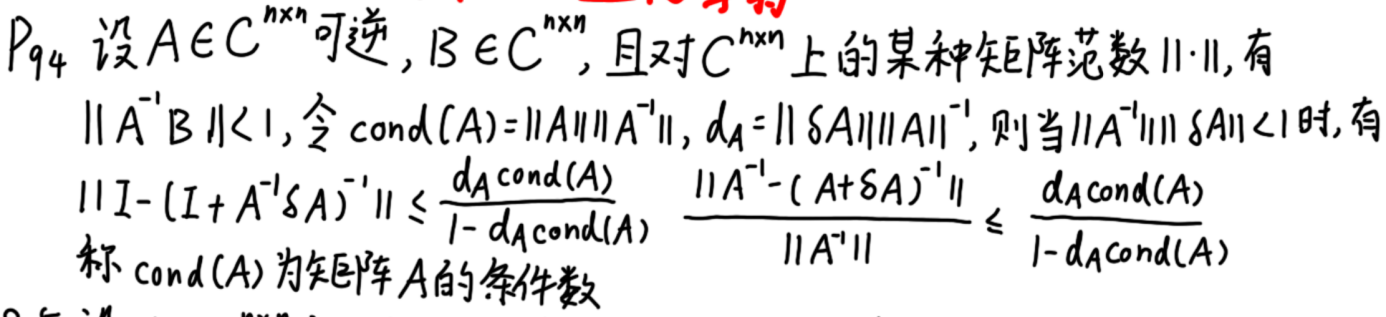 P94 设 A∈C^{n×n} 可逆, B∈C^{n×n}, 且对 C^{n×n} 上的某种矩阵范数 ||·||, 有
||A^{-1}B||<1, 令 cond(A)=||A||||A^{-1}||, d_A=||δA||||A||^{-1}, 则当||A^{-1}||||δA||<1时, 有
||I-(I+A^{-1}δA)^{-1}|| ≤ \frac{d_A cond(A)}{1-d_A cond(A)} \frac{||A^{-1}-(A+δA)^{-1}||}{||A^{-1}||} ≤ \frac{d_A cond(A)}{1-d_A cond(A)}
称 cond(A) 为矩阵 A 的条件数